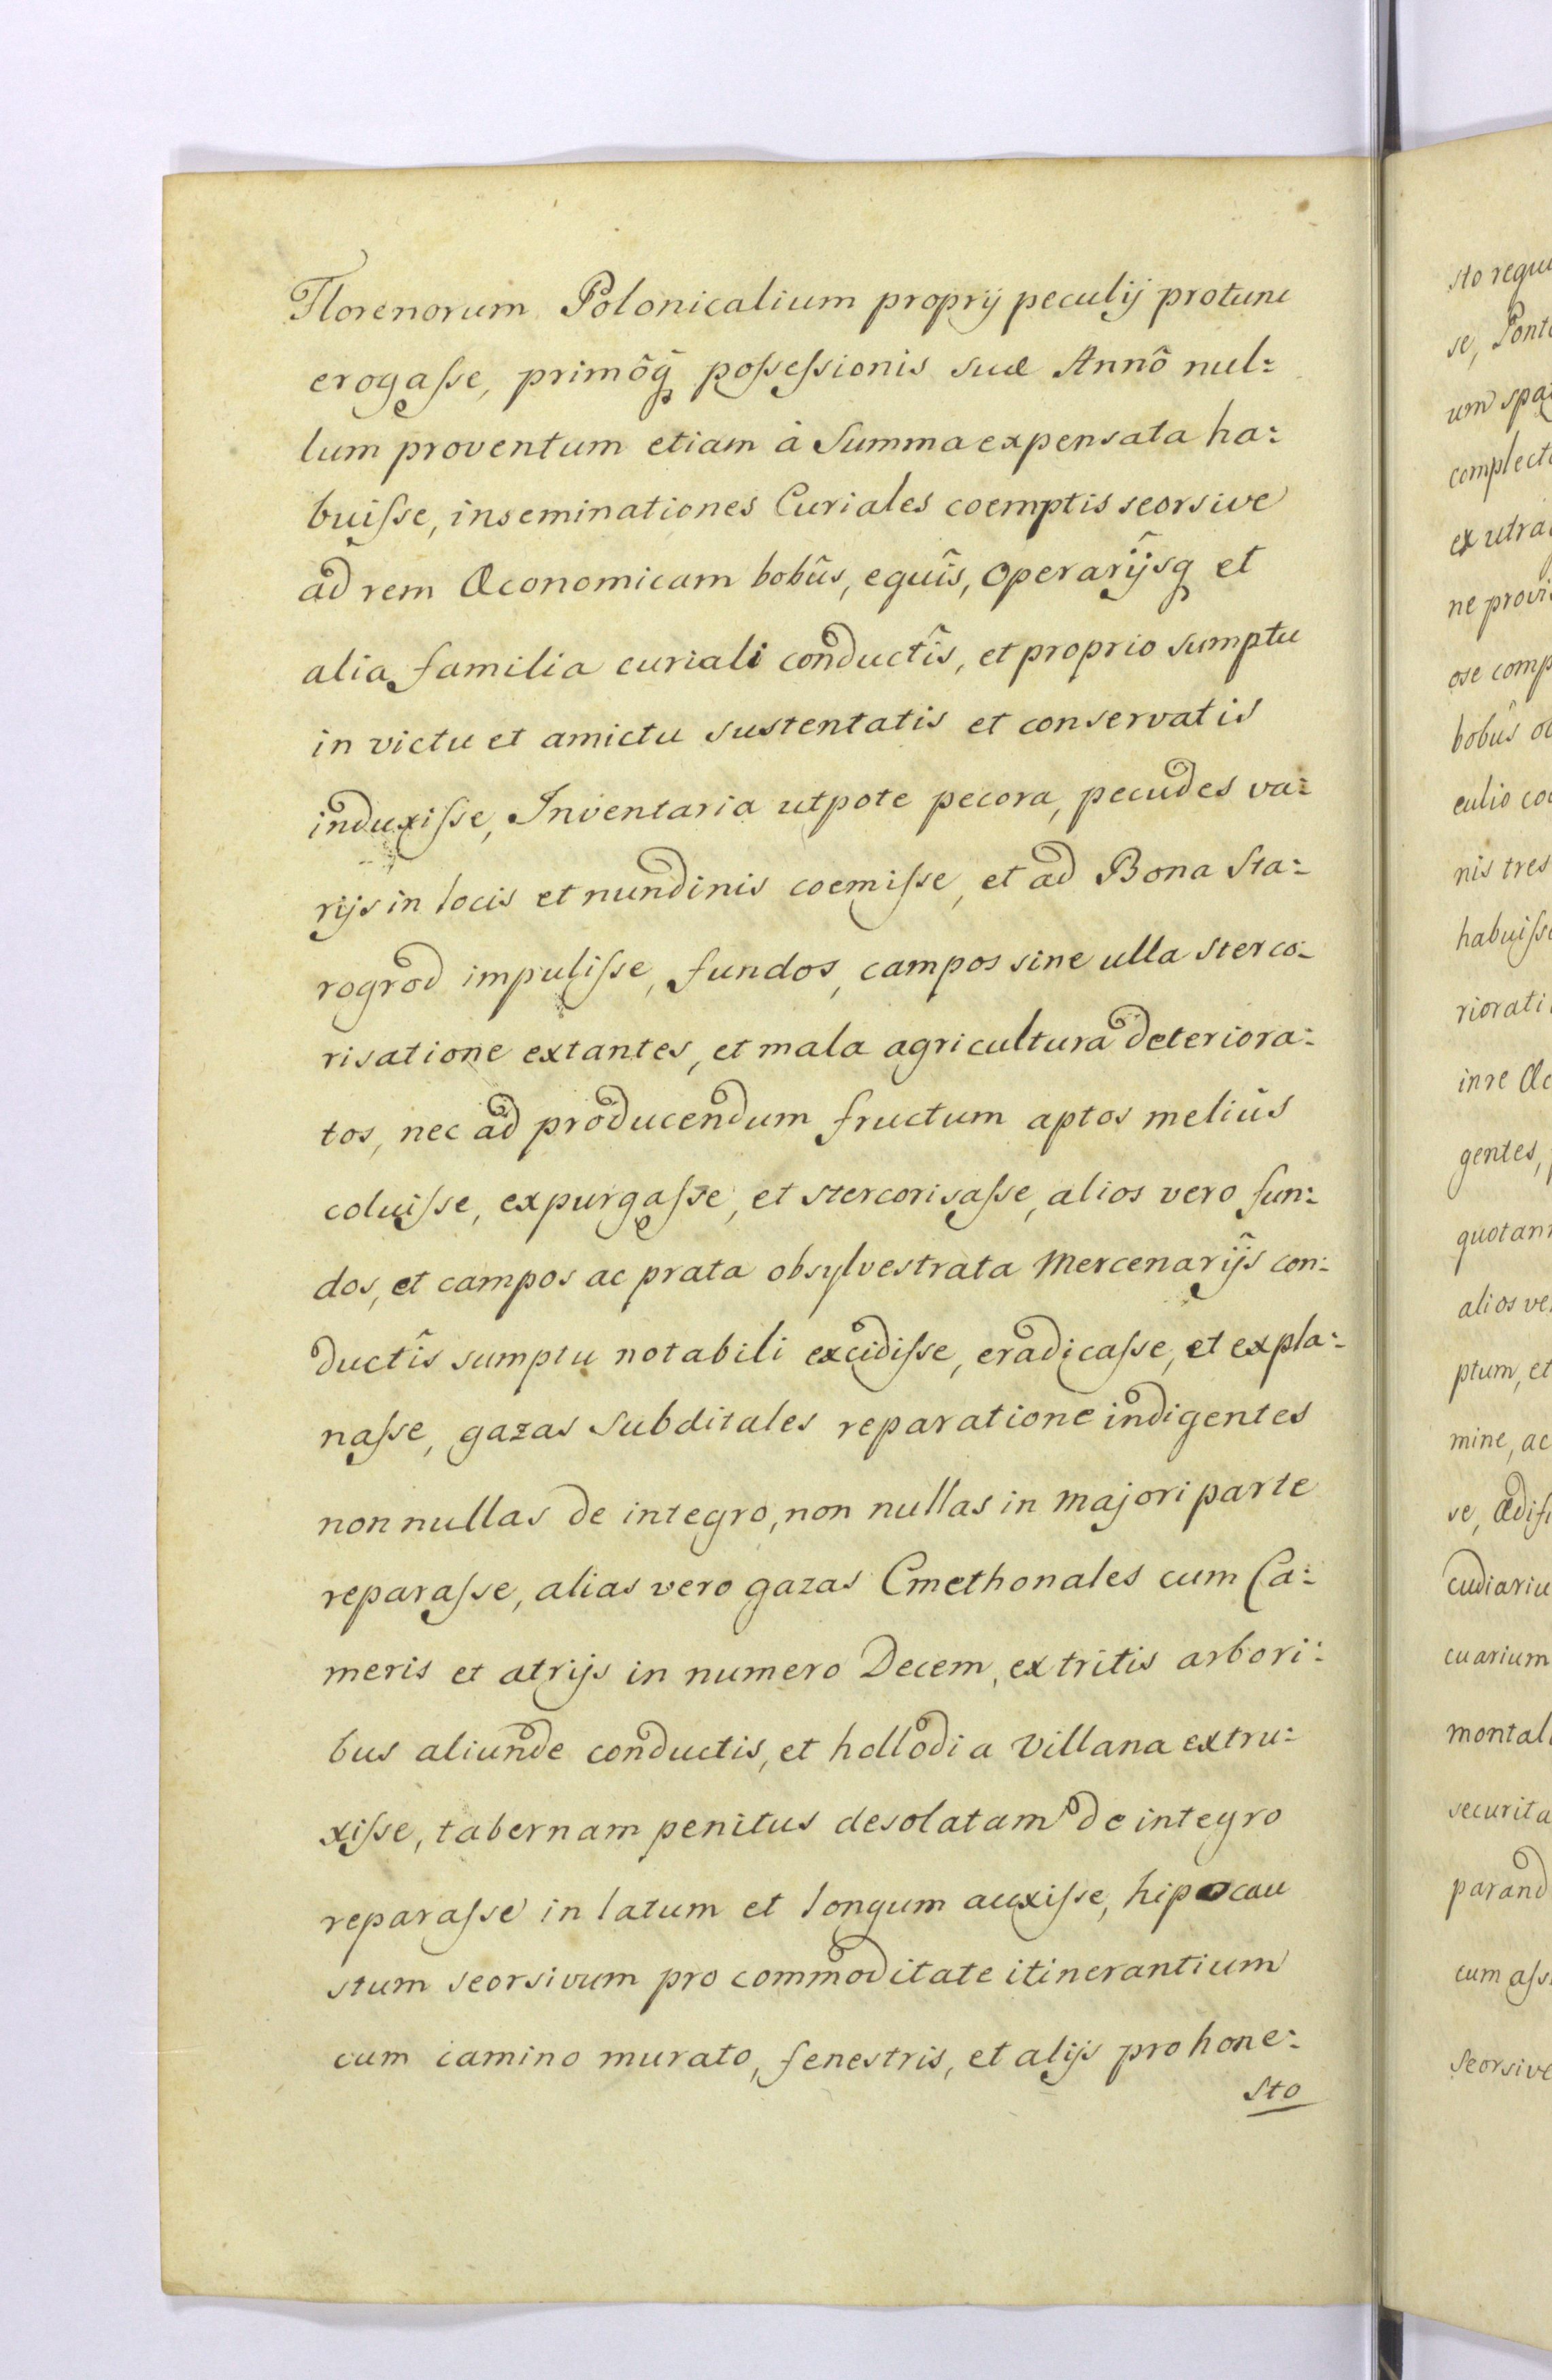 Florenorum Polonicalium proprij peculij protunc
erogaſse, primôq̃ poſseſsionis suæ Annô nul:
lum proventum etiam à Summa expensata ha:
buiſse, inseminationes Curiales coemptis seorsive
ad rem Œconomicam bobûs, equîs, Operarijsq et
alia familia curiali conductîs, et proprio sumptu
in victu et amictu sustentatis et conservatis
induxiſse, Inventaria utpote pecora, pecudes va:
rijs in locis et nundinis coemiſse, et ad Bona Sta:
rogrod impuliſse, fundos, campos sine ulla sterco:
risatione extantes, et mala agricultura deteriora:
tos, nec ad producendum fructum aptos meliûs
coluiſse, expurgaſse, et stercorisaſse, alios vero fun:
dos, et campos ac prata obsylvestrata Mercenarijs con:
ductîs sumptu notabili excidiſse, eradicaſse, et expla:
naſse, gazas Subditales reparatione indigentes
non nullas de integro, non nullas in Majori parte
reparaſse, alias vero gazas Cmethonales cum Ca:
meris et atrijs in numero Decem, ex tritis arbori:
bus aliunde conductis, et hollodia Villana extru:
xiſse, tabernam penitus desolatam de integro
reparaſse in latum et longum auxiſse, hipocau
stum seorsivum pro commoditate itinerantium
cum camino murato, fenestris, et alijs pro hone:
sto
sto requi
se, Pont
um spa
complect
ex utra
ne provi
ose comp
bobûs
culio co
nis tres
habuiſs
riorati
in re Œc
gentes,
quotan
alios ve
ptum, et
mine, ac
se, Ædif
cudiariu
cuarium
montal
securita
parand
cum aſs
Seorsive